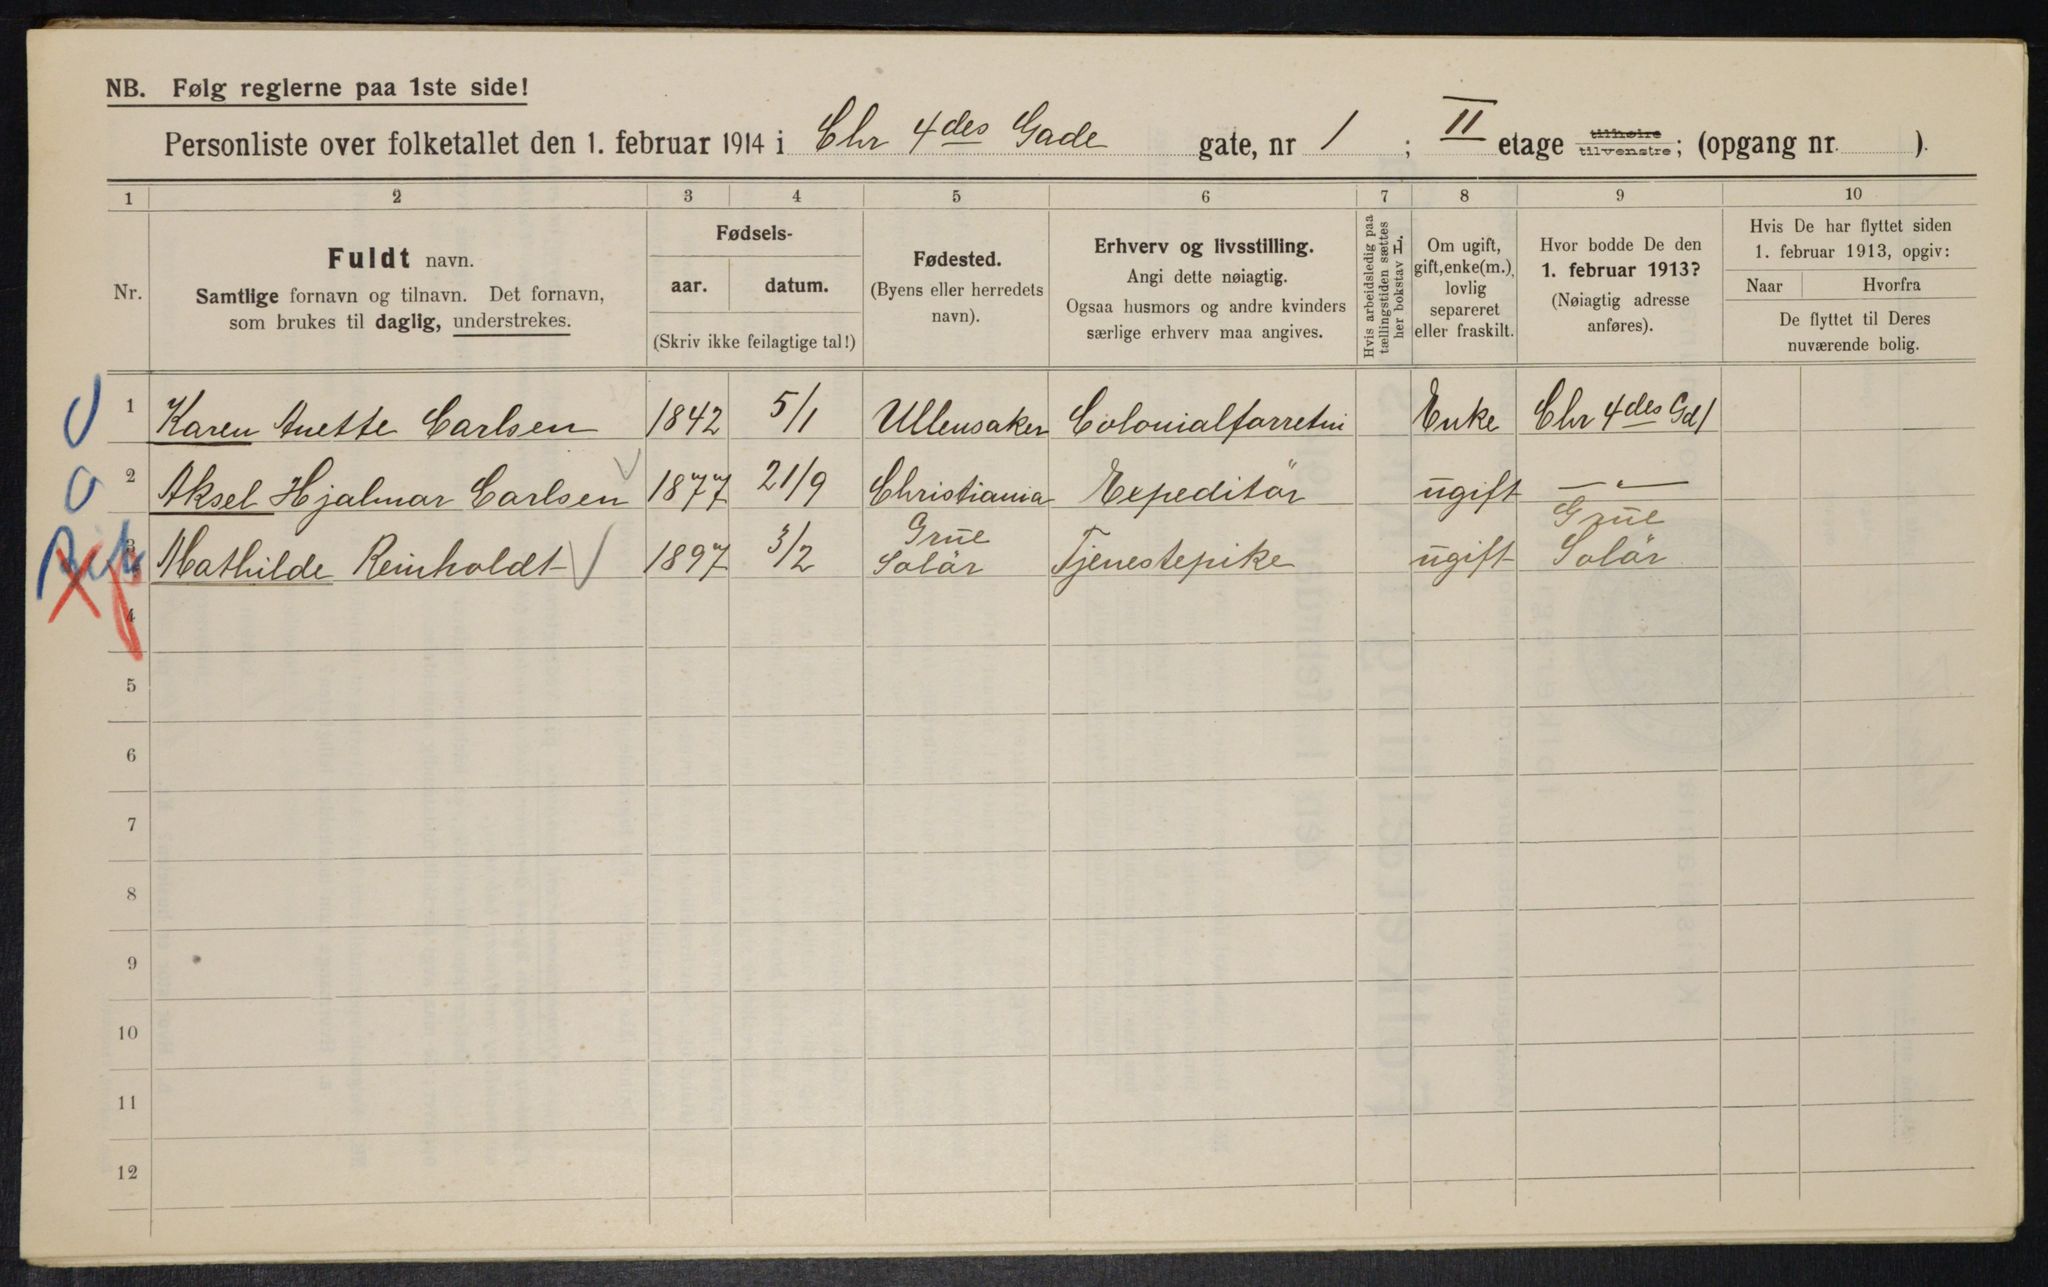 NB. Følg reglerne paa 1ste side!
Personliste over folketallet den 1. februar 1914 i Chr 4des Gade gate, nr 1 ; II etage tilhøire tilvenstre; (opgang nr. ).
1 2 3 4 5 6 7 8 9 10
Nr.
Fuldt navn.
Samtlige fornavn og tilnavn. Det fornavn,
som brukes til daglig, understrekes.
Fødsels-
aar. datum.
(Skriv ikke feilagtige tal!)
Fødested.
(Byens eller herredets
navn).
Erhverv og livsstilling.
Angi dette nøiagtig.
Ogsaa husmors og andre kvinders
særlige erhverv maa angives.
Hvis arbeidsledig paa
tællingstiden sættes
her bokstav L.
Om ugift,
gift, enke(m.),
lovlig
separeret
eller fraskilt.
Hvor bodde De den
1. februar 1913?
(Nøiagtig adresse
anføres).
Hvis De har flyttet siden
1. februar 1913, opgiv:
Naar Hvorfra
De flyttet til Deres
nuværende bolig.
1 Karen Anette Carlsen 1842 5/1 Ullensaker Colonialforretni Enke Chr 4des Gd 1
2 Aksel Hjalmar Carlsen 1877 21/9 Christiania Expeditör ugift — " —
3 Mathilde Reinholdt 1897 3/2 Grue Solör Tjenestepike ugift Grue Solör
4
5
6
7
8
9
10
11
12